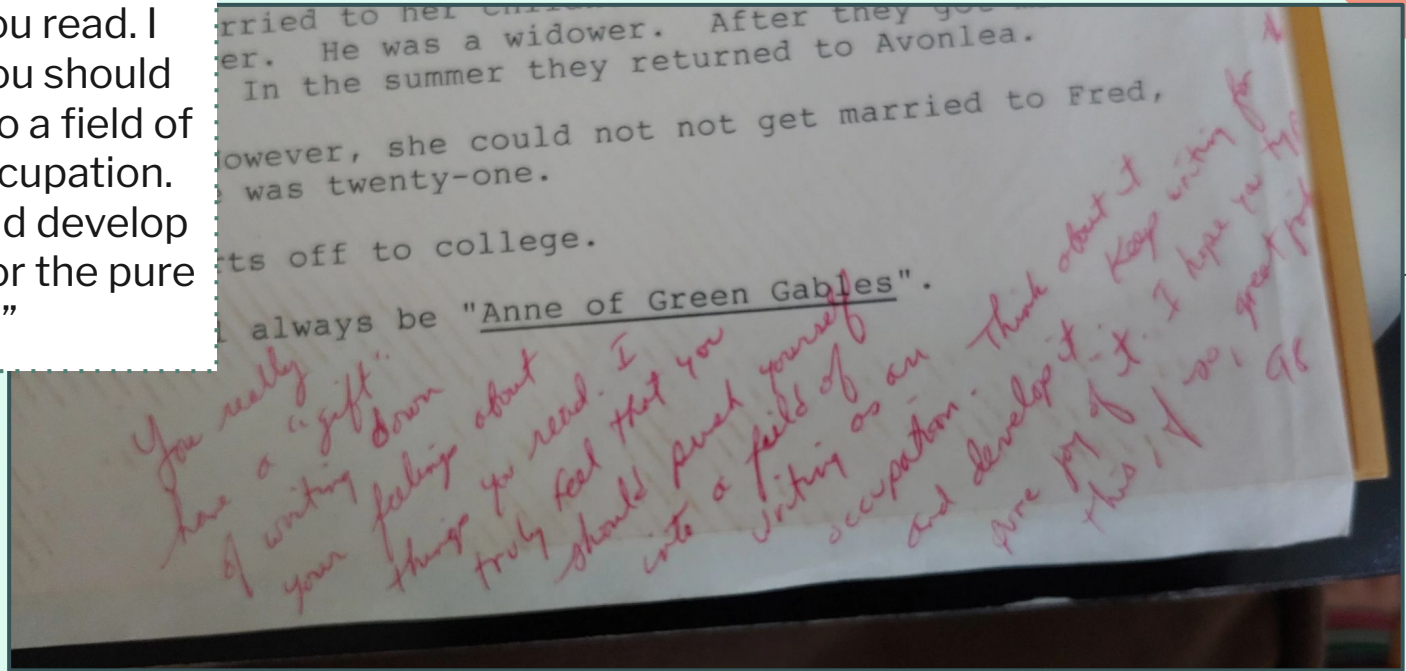 ou read. I
ou should
o a field of
ccupation.
d develop
or the pure
”
rried to her
er. He was a widower. After they
In the summer they returned to Avonlea.
owever, she could not not get married to Fred,
was twenty-one.
ts off to college.
always be "Anne of Green Gables".
You really
have a "gift"
of writing down
your feelings about
things you read. I
truly feel that you
should push yourself
into a field of
writing as an
occupation. Think about it
and develop it. Keep writing for
pure joy of it. I hope you
this, if so, great job
98